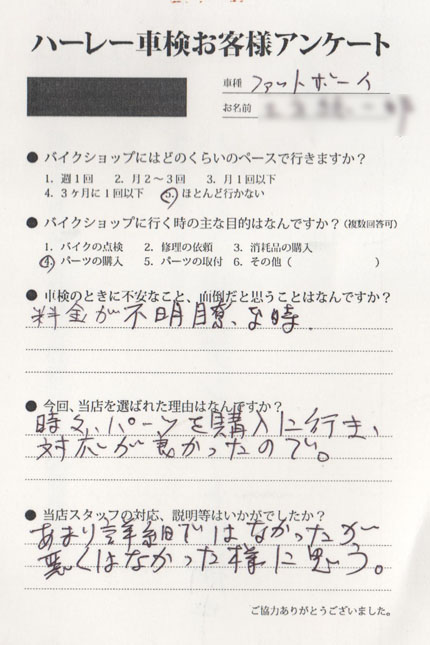 ハーレー車検お客様アンケート
車種 ファットボーイ
お名前
● バイクショップにはどのくらいのペースで行きますか？
1. 週1回 2. 月2～3回 3. 月1回以下
4. 3ヶ月に1回以下 5. ほとんど行かない
● バイクショップに行く時の主な目的はなんですか？(複数回答可)
1. バイクの点検 2. 修理の依頼 3. 消耗品の購入
4. パーツの購入 5. パーツの取付 6. その他（ ）
● 車検のときに不安なこと、面倒だと思うことはなんですか？
料金が不明瞭、な時.
● 今回、当店を選ばれた理由はなんですか？
時々、パーツを購入に行き、
対応が良かったので。
● 当店スタッフの対応、説明等はいかがでしたか？
あまり詳細ではなかったが
悪くはなかった様に思う。
ご協力ありがとうございました。